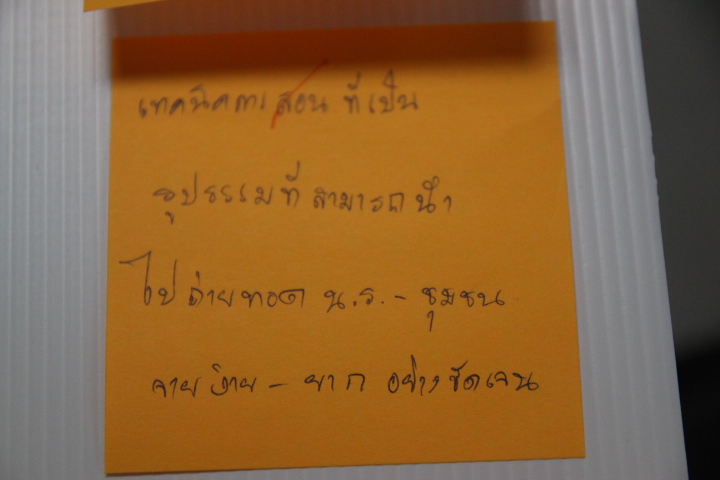 เทคนิคการสอน ที่เป็น
รูปธรรมที่สามารถนำ
ไปถ่ายทอด น.ร. - ชุมชน
จายง่าย - ยาก อย่างชัดเจน